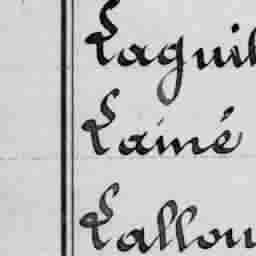 Laguil
Lainé
Lallou